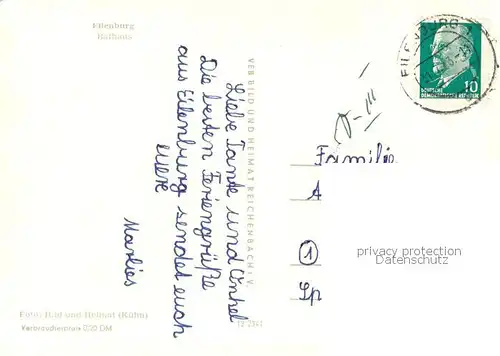 Eilenburg
Rathaus
Liebe Tante und Onkel
Die besten Feriengrüße
aus Eilenburg sendet euch
eure
Marlies
VEB BILD UND HEIMAT REICHENBACH i. V.
Foto: Bild und Heimat (Kühn)
Verbraucherpreis 0,20 DM
EILENBURG
10
DEUTSCHE
DEMOKRATISCHE REPUBLIK
Familie
A
1
Lp
privacy protection
Datenschutz